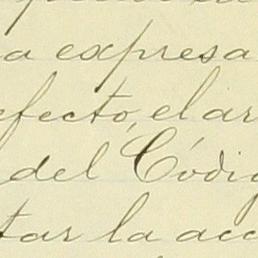 a expresa
efecto, el ar
del Códig
tar la acc